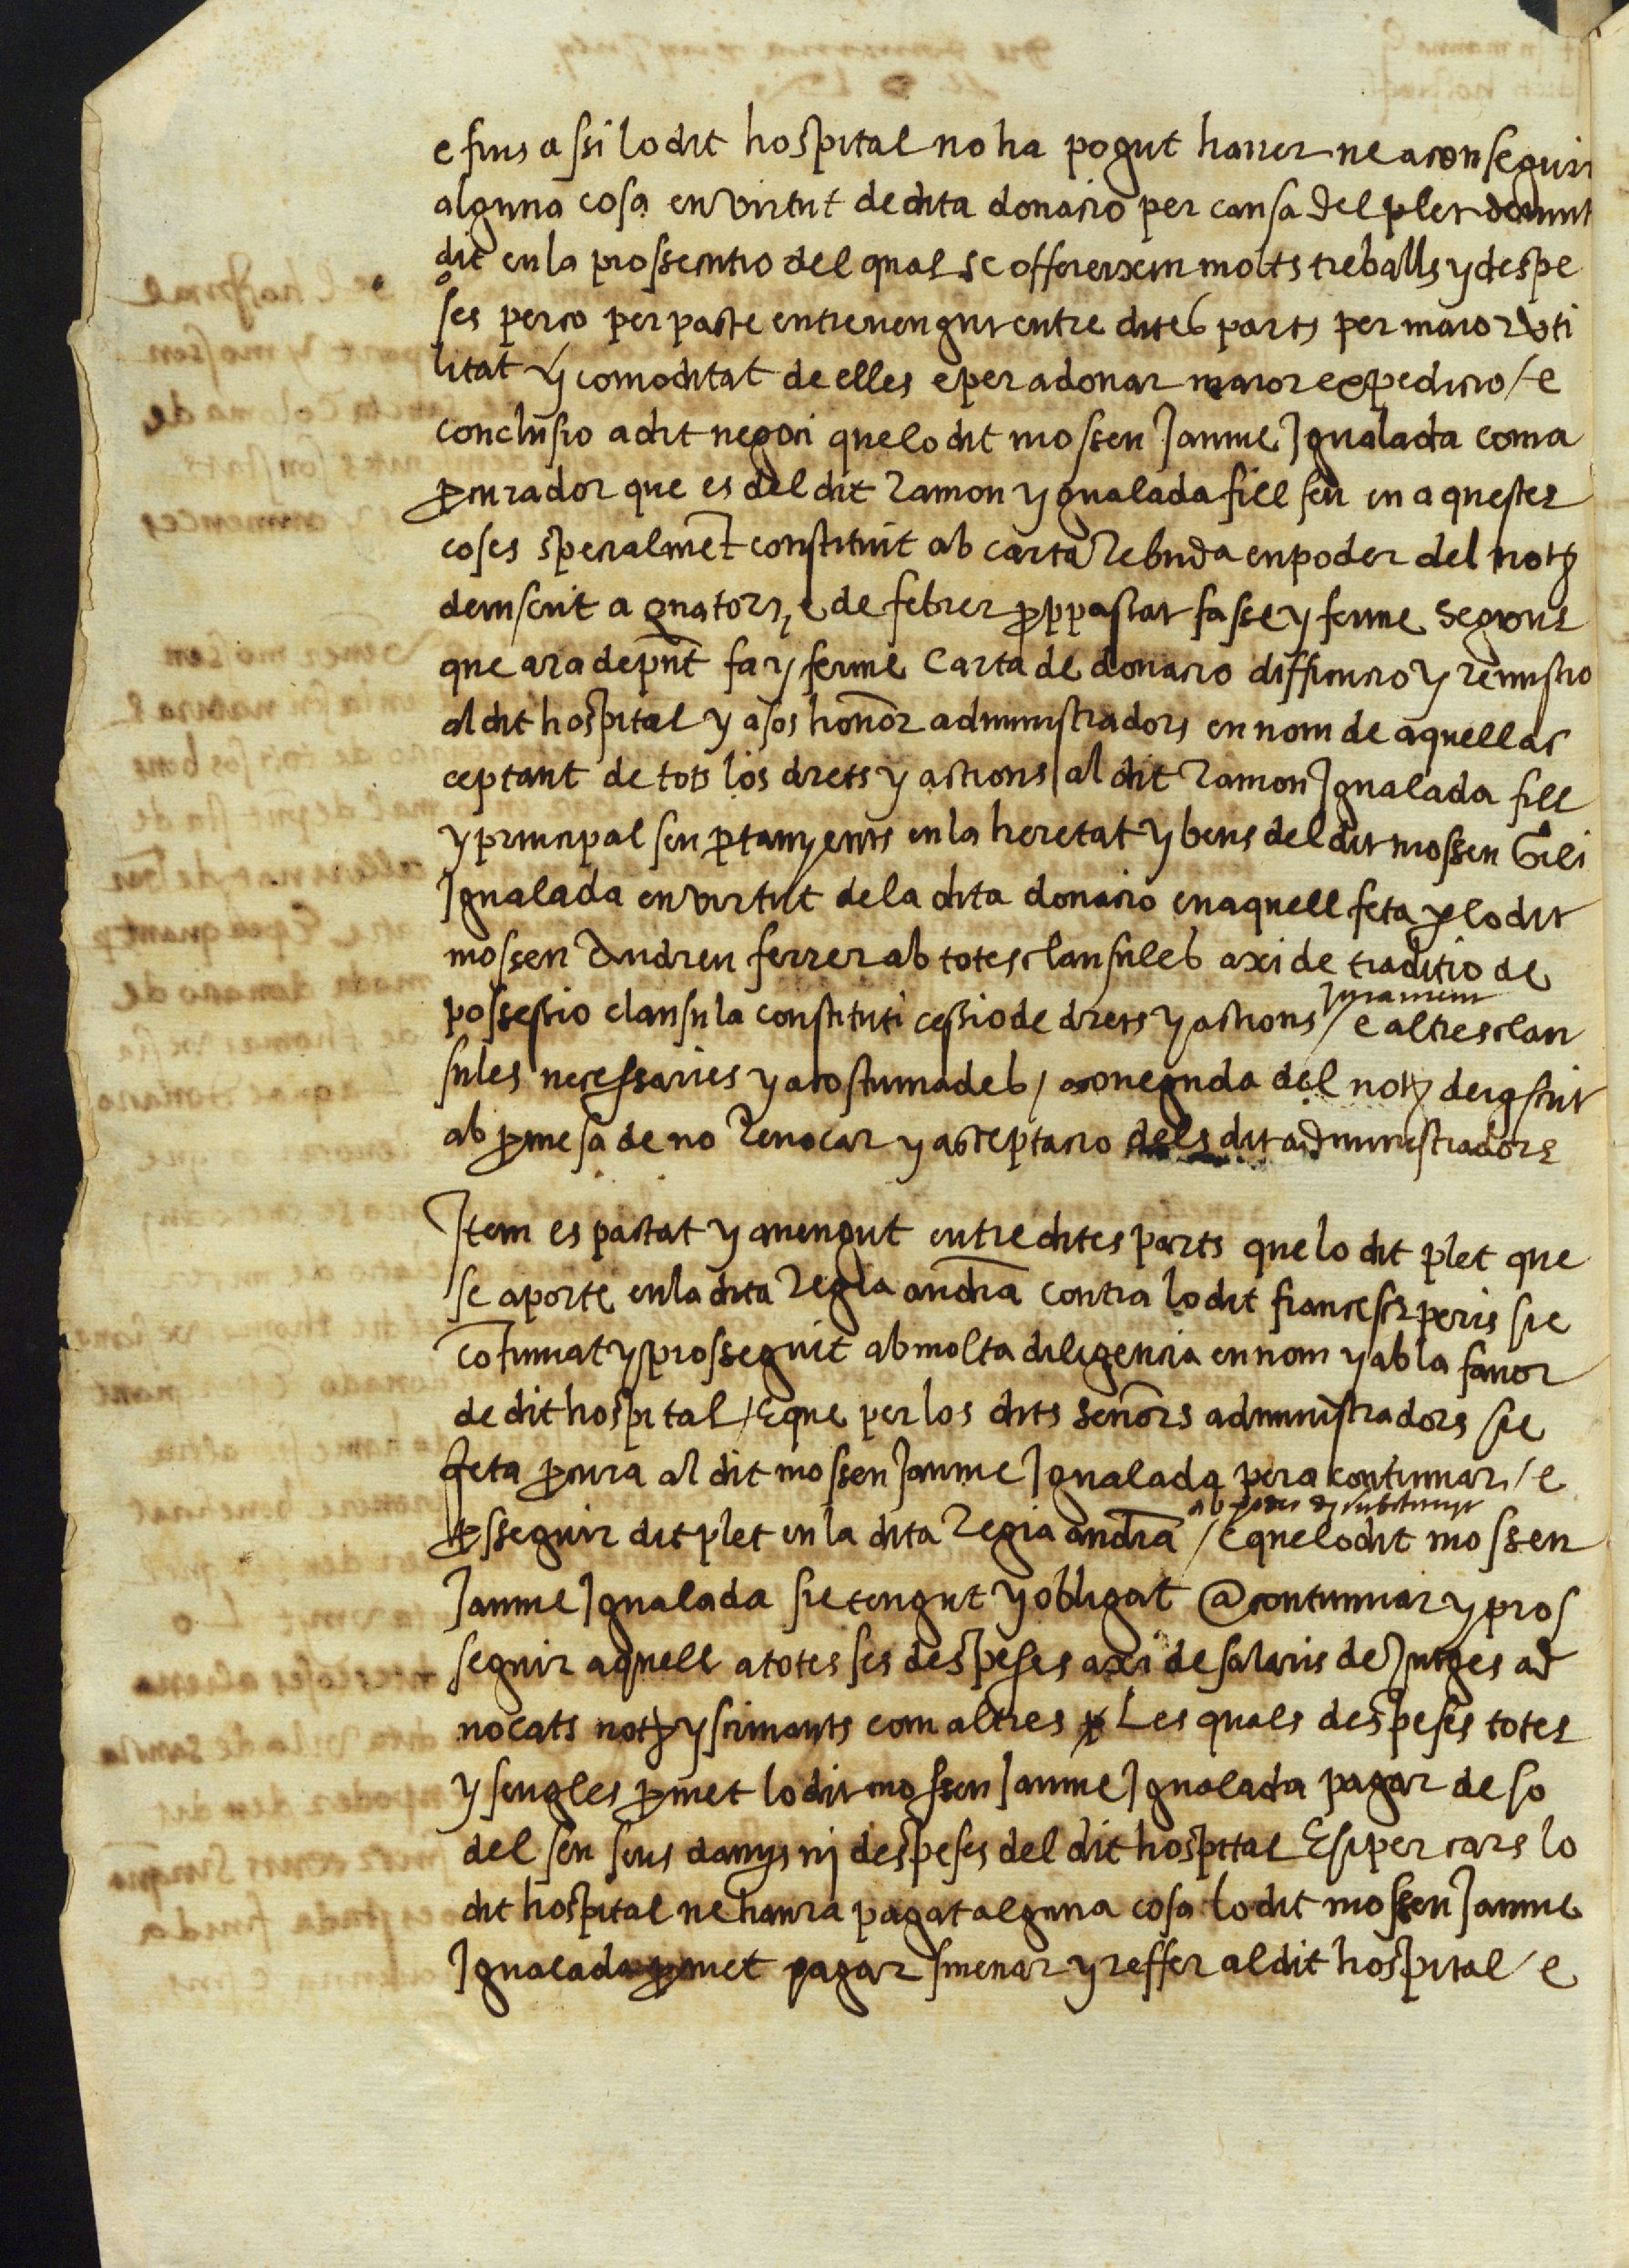 e fins assi lo dit hospital no ha pogut haver ne aconseguir
alguna cosa en virtut de dita donacio per causa del plet demunt
dit en la prossecutio del qual se offereixen molts treballs y despe
ses perço per pacte entrevengut entre dites parts per maior uti
litat y comoditat de elles e per a donar maior expedicio / e
conclusio a dit negoci que lo dit mossen Jaume Igualada com a
procurador que es del dit Ramon Ygualada fill seu en aquestes
coses specialment constituit ab carta rebuda en poder del not
deiuscrit a quatorze de febrer propppassat fasse y ferme segons
que ara de pnt fa y ferme carta de donacio diffinicio y remissio
al dit hospital y a sos honor administradors en nom de aquell ac
ceptant de tots los drets y actions / al dit Ramon Igualada fill
y principal seu ptanyents en la heretat y bens del dit mossen Gili
Igualada en virtut de la dita donacio en aquell feta p lo dit
mossen Andreu ferrer ab totes clausules axi de traditio de
possessio clausula constituti cessio de drets y actions / jurament e altres clau
sules necessaries y acostumades / a coneguda del not deiuscrit
ab pmesa de no revocar y acceptacio dels dit administradors
Item es pactat y avengut entre dites parts que lo dit plet que
se aporte en la dita Regia audia contra lo dit francesch peris sie
cotinuat y prosseguit ab molta diligencia en nom y ab la favor
de dit hospital / E que per los dits senors administradors sie
feta pcura al dit mossen Jaume Igualada pera continuar / e
psseguir dit plet en la dita Regia audia / ab poder de substituyr E que lo dit mossen
Jaume Igualada sie tengut y obligat a continuar y pros
seguir aquell a totes ses despeses axi de salaris de Jutges ad
vocats not y scrivants com altres Les quals despeses totes
y sengles pmet lo dit mossen Jaume Igualada pagar de so
del seu sens danys ni despeses del dit hospital E si per cars lo
dit hospital ne haura pagat alguna cosa lo dit mossen Jaume
Igualada pmet pagar smenar y reffer al dit hospital / e